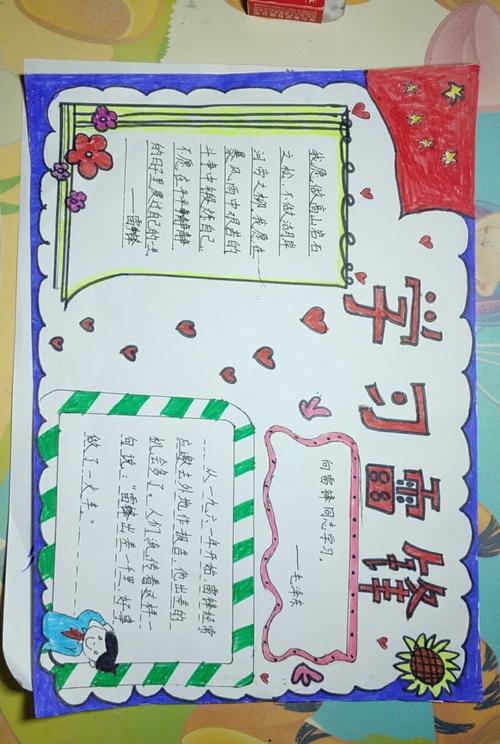 学习雷锋
我愿做高山岩石
之松，不做湖岸
河旁之柳。我愿在
暴风雨中艰苦的
斗争中锻炼自己，
不愿在平平静静
的日子里度过自己的一生
——雷锋
向雷锋同志学习。
——毛泽东
----从一九六一年开始，雷锋经常
应邀去外地作报告，他出差的
机会多了。人们流传着这样一
句说：“雷锋出差一千里，好事
做了一火车”